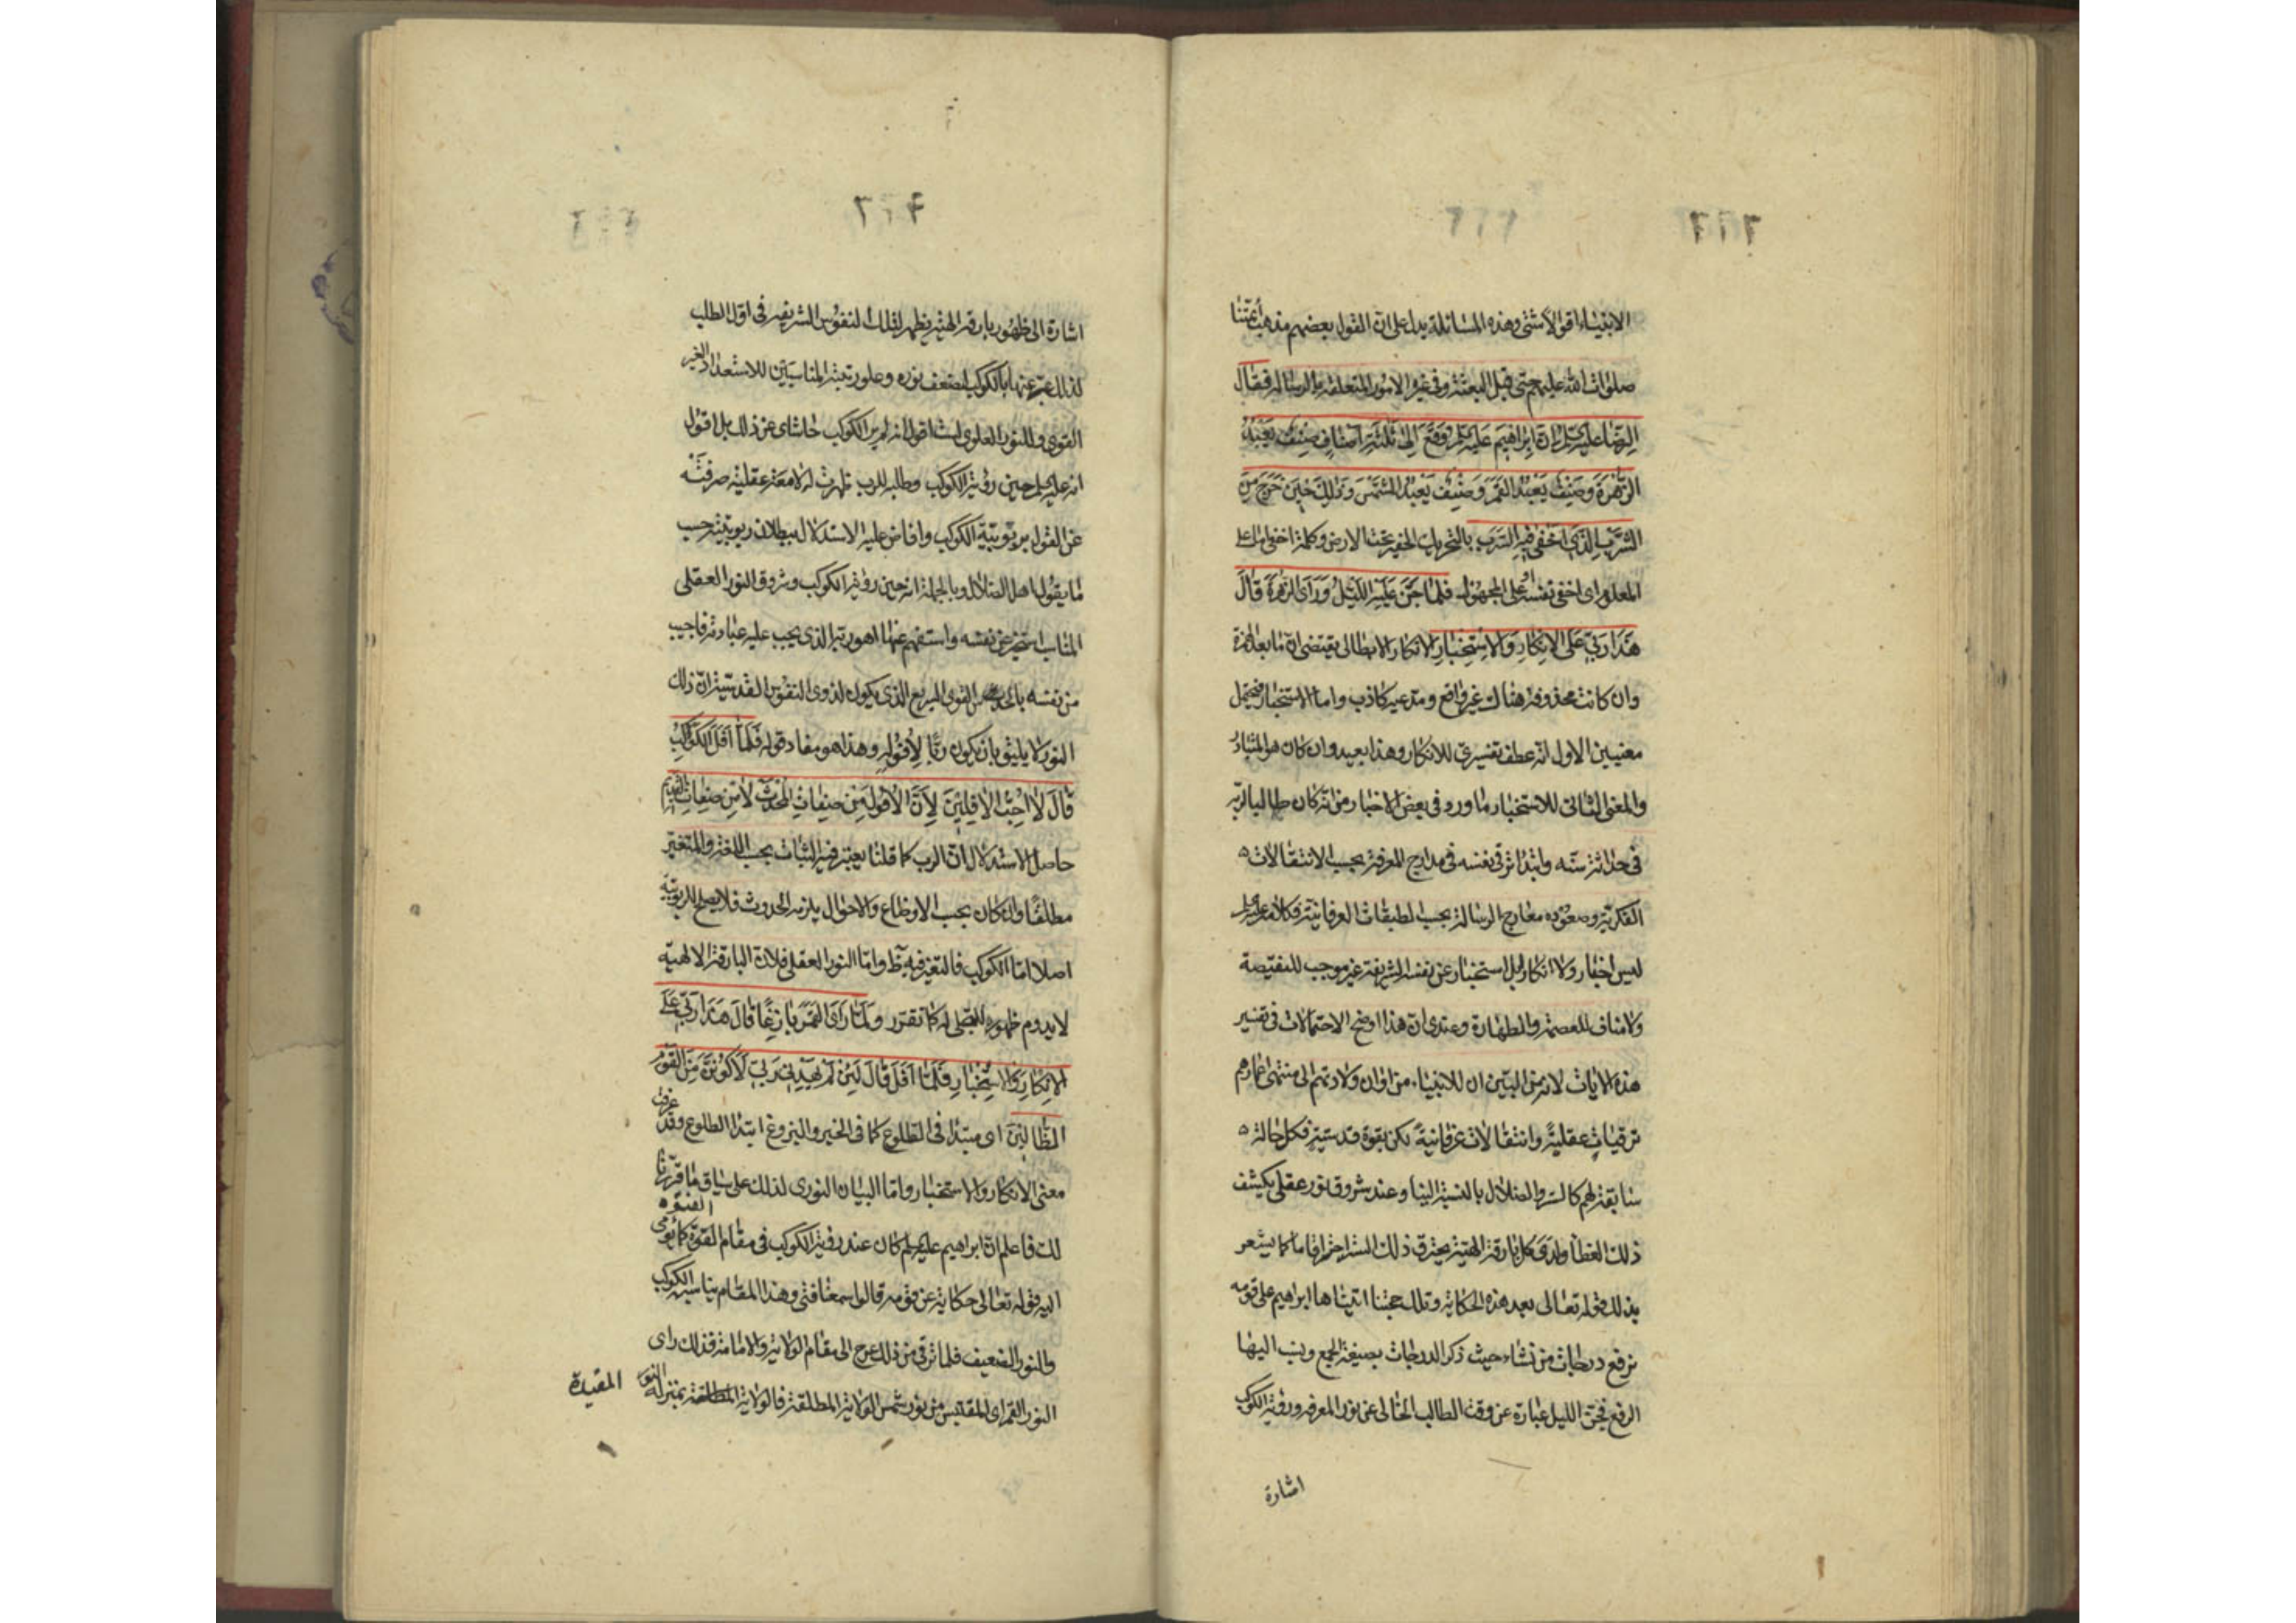 الانبياء اقول لا شتى وهذه المسائلة يدل على ان القول بعصمتهم مذهب أئمتنا
صلوات الله عليهم حتى قبل البعثة وفي غير الامور المتعلقة بالرسالة فقال
الرضا عليه السلم ان ابراهيم عليه السلم وقع الى ثلثة اصناف صنف يعبد
الزهرة وصنف يعبد القمر وصنف يعبد الشمس وذلك حين خرج من
السرب الذي اخفي فيه السرب بالتحريك الحفير تحت الارض وكلمة اخفى اما على
المعلوم اى اخفى نفسه او على المجهول فلما جن عليه الليل وراى الزهرة قال
هذا ربي على الانكار والاستخبار الانكار الابطالى يقتضى ان ما بعد الهمزة
وان كانت محذوفة هناك غير واقع ومدعيه كاذب واما الاستخبار فيحتمل
معنيين الاول انه عطف تفسيرى للانكار وهذا بعيد وان كان هو المتبادر
والمعنى الثانى للاستخبار ما ورد في بعض الاخبار من انه كان طالبا لربه
في حداثة سنه وابتداء ترقى نفسه في مدارج المعرفة بحسب الانتقالات
الفكرية وصعوده معارج الرسالة بحسب الطبقات العرفانية فكلامه عليه السلم
ليس اخبار ولا انكار بل استخبار عن نفسه الشريفة غير موجب للنقيصة
ولا مناف للعصمة والطهارة وعندى ان هذا اوضح الاحتمالات في تفسير
هذه الايات لان من البين ان للانبياء من اوان ولادتهم الى منتهى اعمارهم
ترقيات عقلية وانتقالات عرفانية لكن بقوة قدسية فكل حالة
سابقة لهم كالستر والضلال بالنسبة الينا وعند شروق نور عقلى يكشف
ذلك الغطاء ولدى كل بارقة الهية يحترق ذلك الستر احتراقا ما كما يشعر
بذلك قوله تعالى بعد هذه الحكاية وتلك حجتنا اتيناها ابراهيم على قومه
نرفع درجات من نشاء حيث ذكر الدرجات بصيغة الجمع ونسب اليها
الرفع فجن الليل عبارة عن وقت الطالب الخالى عن نور المعرفة ورؤية الكوكب
اشارة
اشارة الى ظهور بارقة الهية يظهر لتلك النفوس الشريفة في اول الطلب
لذلك عبر عنها بالكوكب لضعف نوره وعلو رتبته المناسبين للاستعداد الغير
القوى وللنور العلوى لست اقول انه لم ير الكوكب حاشاى عن ذلك بل اقول
انه عليه السلم حين رؤية الكوكب وطلبه للرب ظهرت له لامعة عقلية صرفته
عن القول بربوبية الكوكب وافاض عليه الاستدلال ببطلان ربوبيته حسب
ما يقول اهل الضلال وبالجملة انه حين رؤية الكوكب وشروق النور العقلى
المناسب استخبر عن نفسه واستفهم عنها اهو ربه الذى يجب عليه عبادته فاجيب
من نفسه بالحدس القوى السريع الذى يكون لذوى النفوس القدسية ان ذلك
النور لا يليق بان يكون ربا لأفوله وهذا هو مفاد قوله فلما أفل الكوكب
قال لا احب الافلين لأن الأفول من صفات المحدث لا من صفات القديم
حاصل الاستدلال ان الرب كما قلنا يعتبر فيه الثبات بحسب اللغة والمتغير
مطلقا وان كان بحسب الاوضاع والاحوال يلزمه الحدوث فلا يصلح للربوبية
اصلا اما الكوكب فالتغير فيه ظ واما النور العقلى فلان البارقة الالهية
لا يدوم ظهوره للمتجلى له كما تقرر ولما راى القمر بازغا قال هذا ربي على
الانكار والاستخبار فلما افل قال لئن لم يهدني ربي لأكونن من القوم
الظالين اى مبتدا في الطلوع كما في الخبر والبزوغ ابتداء الطلوع وقد عرفت
معنى الانكار والاستخبار واما البيان النورى لذلك على سياق ما قررنا
لك فاعلم ان ابراهيم عليه السلم كان عند رؤية الكوكب في مقام الفتوة كما يومى
اليه قوله تعالى حكاية عن قومه قالوا سمعنا فتى وهذا المقام يناسبه الكوكب
والنور الضعيف فلما ترقى من ذلك عرج الى مقام الولاية والامامة فذلك راى
النور القمراى المقتبس من نور شمس الولاية المطلقة فالولاية المطلقة بمنزلة النور
المقيدة